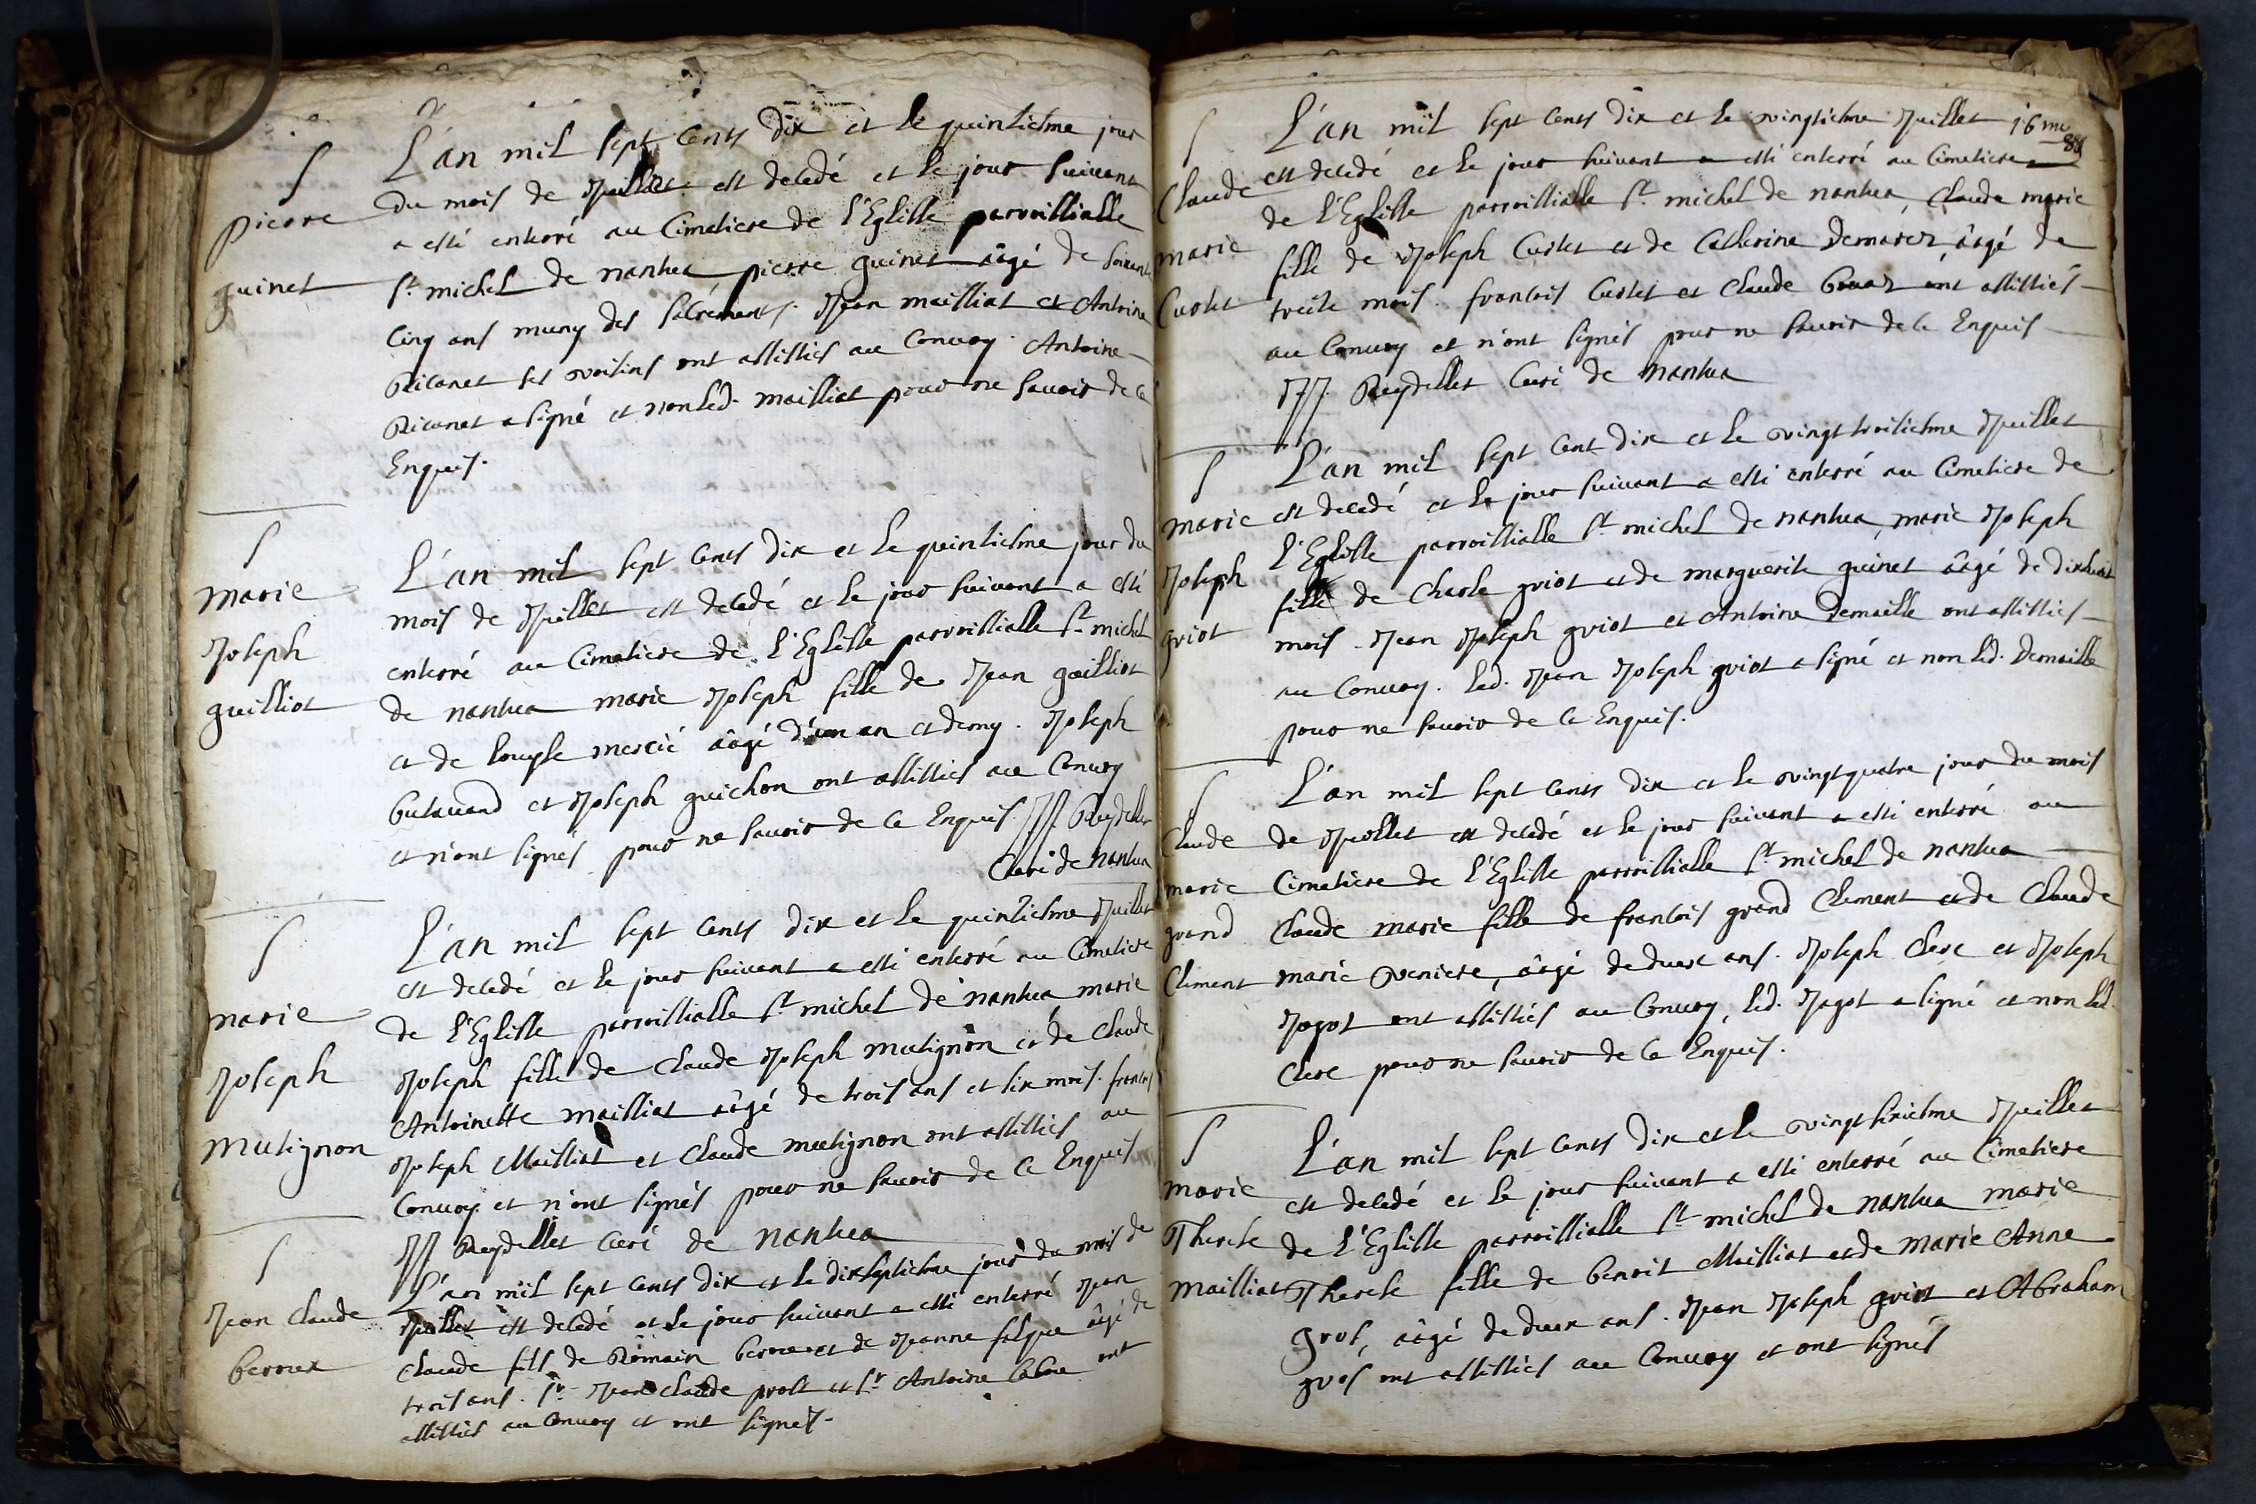 S
Pierre
guinet
L'an mil sept cents dix et le quinziesme jour
du mois de Juillet est decedé et le jour suivant
a esté enterré au Cimetiere de l'Eglisse parroissialle
St michel de nantua pierre guinet aâgé de soixante
Cinq ans muny des sacrements. Jean mailliat et Antoine
Ricanet ses voisins ont assistiés au Convoy. Antoine
Ricanet a signé et non led. mailliat pour ne savoir de ce
Enquis.
S
marie
Joseph
guilliot
L'an mil sept cents dix et le quinziesme jour du
mois de Juillet est decedé et le jour suivant a esté
enterré au Cimetiere de l'Eglisse parroissialle St michel
de nantua marie Joseph fille de Jean guilliot
et de Louyse mercié aâgé d'un an et demy. Joseph
butavand et Joseph guichon ont assistiés au Convoy
et n'ont signés pour ne savoir de ce Enquis. JJ. Reydellet
Curé de nantua
S
marie
Joseph
mutignon
L'an mil sept cents dix et le quinziesme Juillet
est decedé et le jour suivant a esté enterré au Cimetiere
de l'Eglisse parroissialle St michel de nantua marie
Joseph fille de Claude Joseph mutignon et de Claude
Antoinette mailliat aâgé de trois ans et six mois. francois
Joseph Mailliat et Claude mutignon ont assistiés au
Convoy et n'ont signés pour ne savoir de ce Enquis
JJ Reydellet Curé de nantua
S
Jean Claude
berrux
L'an mil sept cents dix et le dixseptiesme jour du mois de
Juillet est decedé et le jour suivant a esté enterré Jean
Claude fils de Romain berrux et de Jeanne falque aâgé de
trois ans. Sr Jean Claude prost et Sr Antoine ont
assistiés au Convoy et ont signés.
16 me
88
S
Claude
marie
Curlet
L'an mil sept cents dix et le vingtiesme Juillet
est decedé et le jour suivant a esté enterré au Cimetiere
de l'Eglisse parroissialle St michel de nantua, Claude marie
fille de Joseph Curlet et de Catherine Demarez aâgé de
treize mois. francois Curlet et Claude ont assistiés
au Convoy et n'ont signés pour ne savoir de ce Enquis
JJ. Reydellet Curé de nantua
S
marie
Joseph
guiot
L'an mil sept cent dix et le vingt troisiesme Juillet
est decedé et le jour suivant a esté enterré au Cimetiere de
l'Eglisse parroissialle St michel de nantua, marie Joseph
fille de Charle guiot et de marguerite guinet aâgé de dixhuit
mois. Jean Joseph guiot et Antoine Demaille ont assistiés
au Convoy. led. Jean Joseph guiot a signé et non led. Demaille
pour ne savoir de ce Enquis.
S
Claude
marie
grand
Clement
L'an mil sept cents dix et le vingtquatre jour du mois
de Juillet est decedé et le jour suivant a esté enterré au
Cimetiere de l'Eglisse parroissialle St michel de nantua
Claude marie fille de francois grand Clement et de Claude
marie veniere, aâgé de deux ans. Joseph Clerc et Joseph
Jagot ont assistiés au Convoy, led. Jagot a signé et non led.
Clerc pour ne savoir de ce Enquis.
S
marie
Therese
mailliat
L'an mil sept cents dix et le vingt sixiesme Juillet
est decedé et le jour suivant a esté enterré au Cimetiere
de l'Eglisse parroissialle St michel de nantua marie
Therese fille de benoit Mailliat et de marie Anne
gros, aâgé de deux ans. Jean Joseph guiot et Abraham
gros ont assistiés au Convoy et ont signés